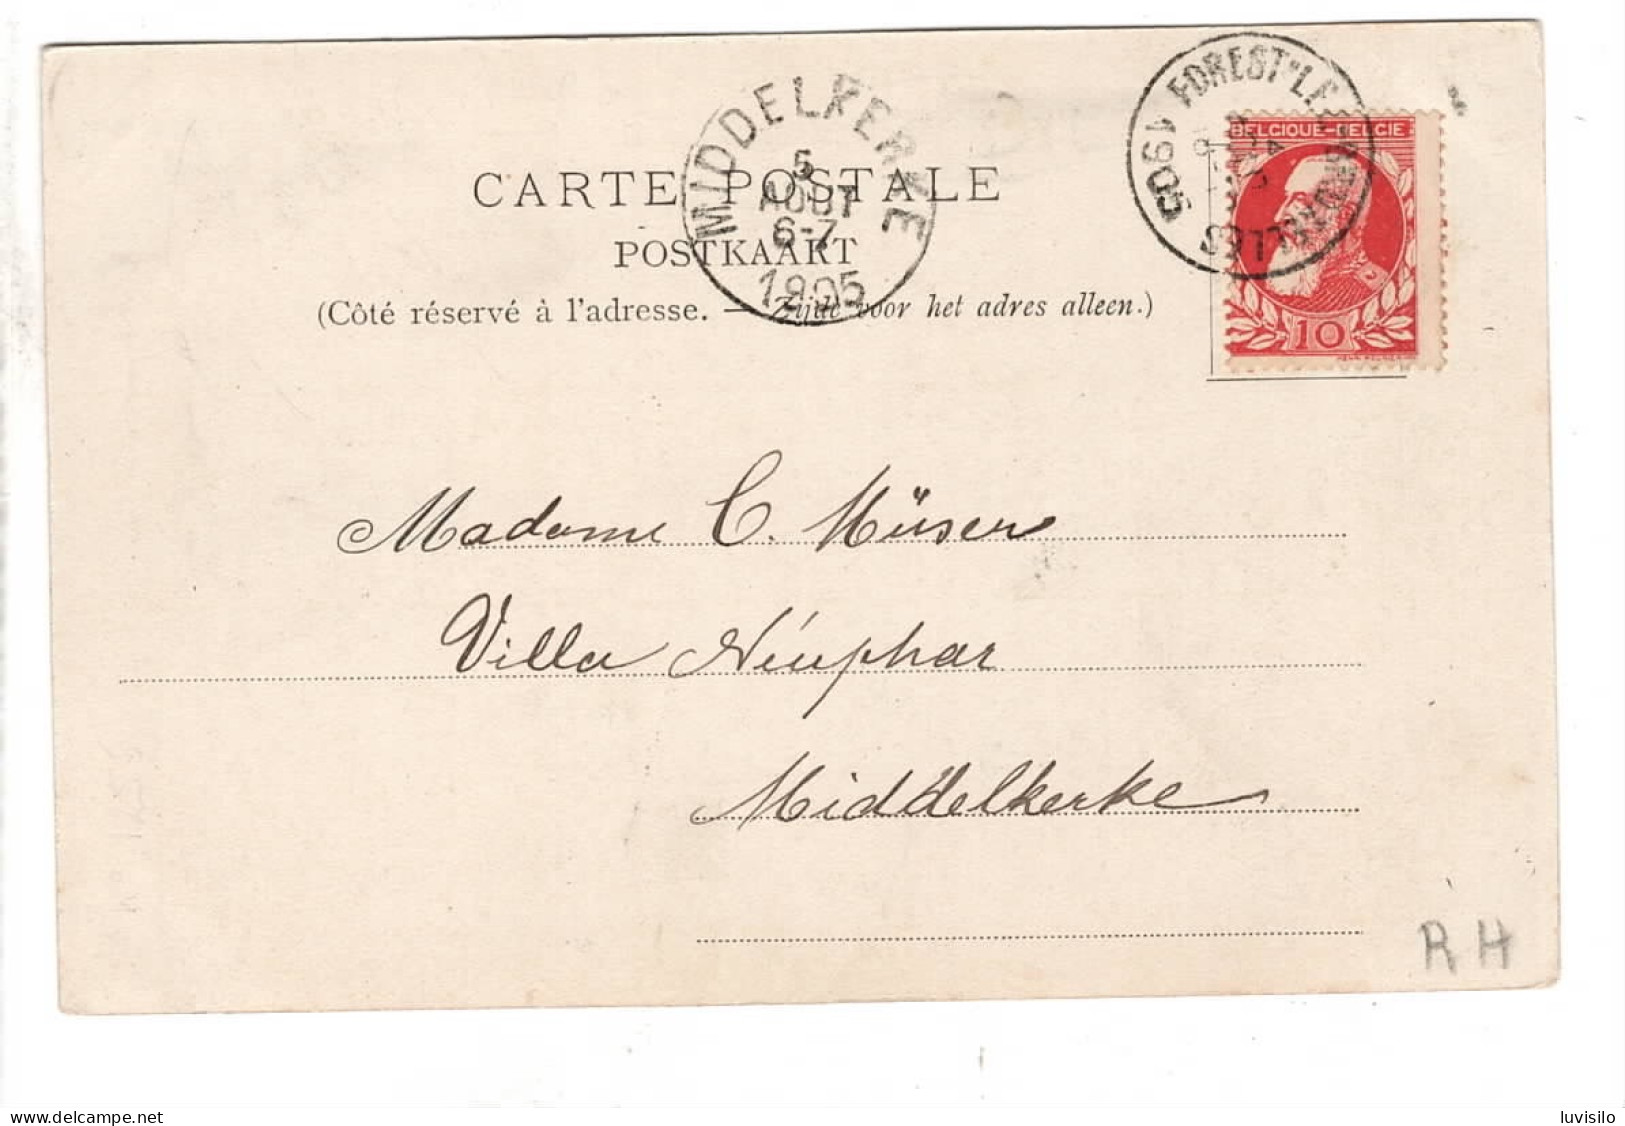 FOREST "LEZ-BRUXELLES
1905
BELGIQUE-BELGIË
10
MIDDELKERKE
5
AOUT
6-7
1905
CARTE POSTALE
POSTKAART
(Côté réservé à l'adresse. — Zijde voor het adres alleen.)
Madame C. Müser
Villa Nénuphar
Middelkerke
RH
delcampe.net
luvisilo